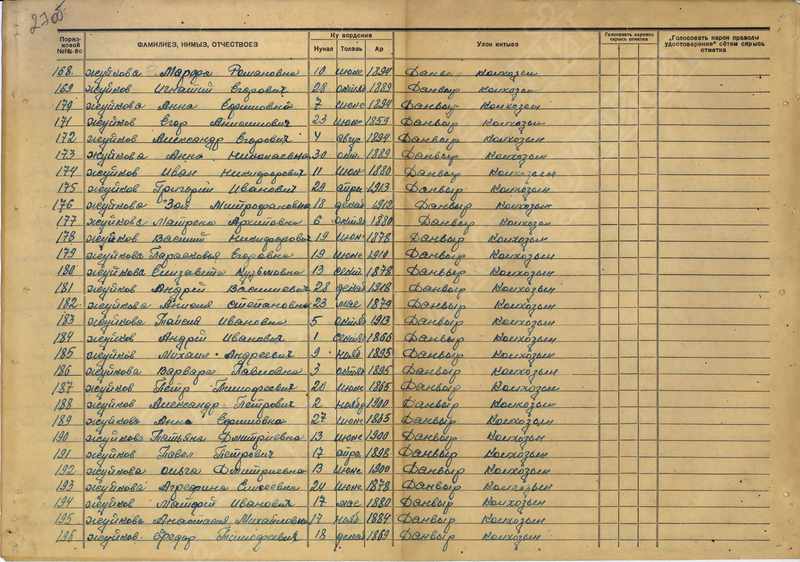 230б
Поряд-ковӧй №№-ӧс
ФАМИЛИЕЗ, НИМЫЗ, ОТЧЕСТВОЕЗ
Ку вордскӧн
Нунал Толэзь Ар
Улон интыез
168. Жуйкова Марфа Романовна 10 июне 1894 Данвыр Колхозын
169 Жуйков Игнатий Егорович 28 1889 Данвыр колхозын
170 Жуйкова Анна Ефимовна 7 июне 1894 Данвыр Колхозын
171 Жуйков Егор 23 1859 Данвыр Колхозын
172 Жуйков Александр Егорович 4 авгус 1894 Данвыр Колхозын
173 Жуйкова Анна Николаевна 30 окт. 1889 Данвыр Колхозын
174 Жуйков Иван Никифорович 11 1880 Данвыр Колхозын
175 Жуйков Григорий Иванович 29 апре 1913 Данвыр Колхозын
176 Жуйкова Зоя Митрофановна 18 декаб 1912 Данвыр Колхозын
177 Жуйкова Матрена Архиповна 6 октяб 1880 Данвыр Колхозын
178 Жуйков Василий Никифорович 19 1878 Данвыр Колхозын
179 Жуйкова Парасковья Егоровна 19 июне 1910 Данвыр Колхозын
180 Жуйкова Елизавета Кузьмовна 13 сент. 1878 Данвыр Колхозын
181 Жуйков Андрей Васильевич 28 декаб 1918 Данвыр Колхозын
182 Жуйкова Степановна 23 мае 1879 Данвыр Колхозын
183 Жуйкова Таисия Ивановна 5 октяб 1913 Данвыр Колхозын
184 Жуйков Андрей Иванович 1 сентяб 1866 Данвыр Колхозын
185 Жуйков Михаил Андреевич 9 нояб 1895 Данвыр Колхозын
186 Жуйкова Варвара Павловна 3 октяб 1895 Данвыр Колхозын
187 Жуйков Петр Тимофеевич 20 июне 1865 Данвыр Колхозын
188 Жуйков Александр Петрович 2 нояб 1900 Данвыр Колхозын
189 Жуйкова Анна Ефимовна 27 июне Данвыр Колхозын
190 Жуйкова Татьяна Дмитриевна 13 июне 1900 Данвыр Колхозын
191 Жуйков Павел Петрович 17 апре 1898 Данвыр Колхозын
192 Жуйкова Ольга Дмитриевна 13 июне 1900 Данвыр Колхозын
193 Жуйкова Агрефина Елисеевна 24 июне 1878 Данвыр Колхозын
194 Жуйков Матфей Иванович 17 мае 1880 Данвыр Колхозын
195 Жуйкова Анастасия Михаиловна 17 нояб 1884 Данвыр Колхозын
196 Жуйков Федор Тимофеевич 18 декаб 1869 Данвыр Колхозын